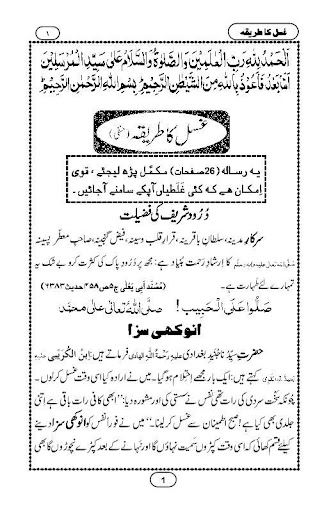 غسل کا طریقہ
۱
اَلْحَمْدُ لِلّٰہِ رَبِّ الْعٰلَمِیْنَ وَالصَّلٰوۃُ وَالسَّلَامُ عَلٰی سَیِّدِ الْمُرْسَلِیْنَ
اَمَّا بَعْدُ فَاَعُوْذُ بِاللّٰہِ مِنَ الشَّیْطٰنِ الرَّجِیْمِ بِسْمِ اللّٰہِ الرَّحْمٰنِ الرَّحِیْمِ
غسل کا طریقہ (حنفی)
یہ رسالہ (26صفحات) مکمَّل پڑھ لیجئے، قوی
اِمکان ہے کہ کئی غلَطیاں آپکے سامنے آجائیں۔
دُرُود شریف کی فضیلت
سرکارِ مدینہ، سلطانِ باقرینہ، قرارِ قلب وسینہ، فیض گنجینہ، صاحبِ معطر پسینہ
صلَّی اللہ تعالیٰ علیہ واٰلہٖ وسلَّم کا ارشادِ رَحمت بُنیاد ہے: مجھ پر دُرُودِ پاک کی کثرت کرو بے شک یہ
تمہارے لئے طہارت ہے۔ (مُسْنَد اَبِی یَعْلٰی ج۵ ص۴۵۸ حدیث ۶۳۸۳)
صَلُّوْا عَلَی الْحَبِیْب! صلَّی اللہُ تعالٰی علٰی محمَّد
انوکھی سزا
حضرتِ سیِّدُنا جُنَید بغدادی علیہ رَحْمَۃُ اللہِ الھادی فرماتے ہیں: اِبنُ الْکُرَیبِی
کہتے ہیں: ایک بار مجھے اِحتِلام ہوگیا۔ میں نے ارادہ کیا اسی وقت غسل کرلوں۔
چُونکہ سخت سردی کی رات تھی نفس نے سستی کی اور مشورہ دیا: ”ابھی کافی رات باقی ہے اتنی
جلدی بھی کیا ہے! صبح اطمینان سے غسل کرلینا۔“ میں نے فوراً نفس کو انوکھی سزا دینے
کیلئے قسم کھائی کہ اسی وقت کپڑوں سَمیت نہاؤں گا اور نہانے کے بعد کپڑے نچوڑوں گا بھی
1